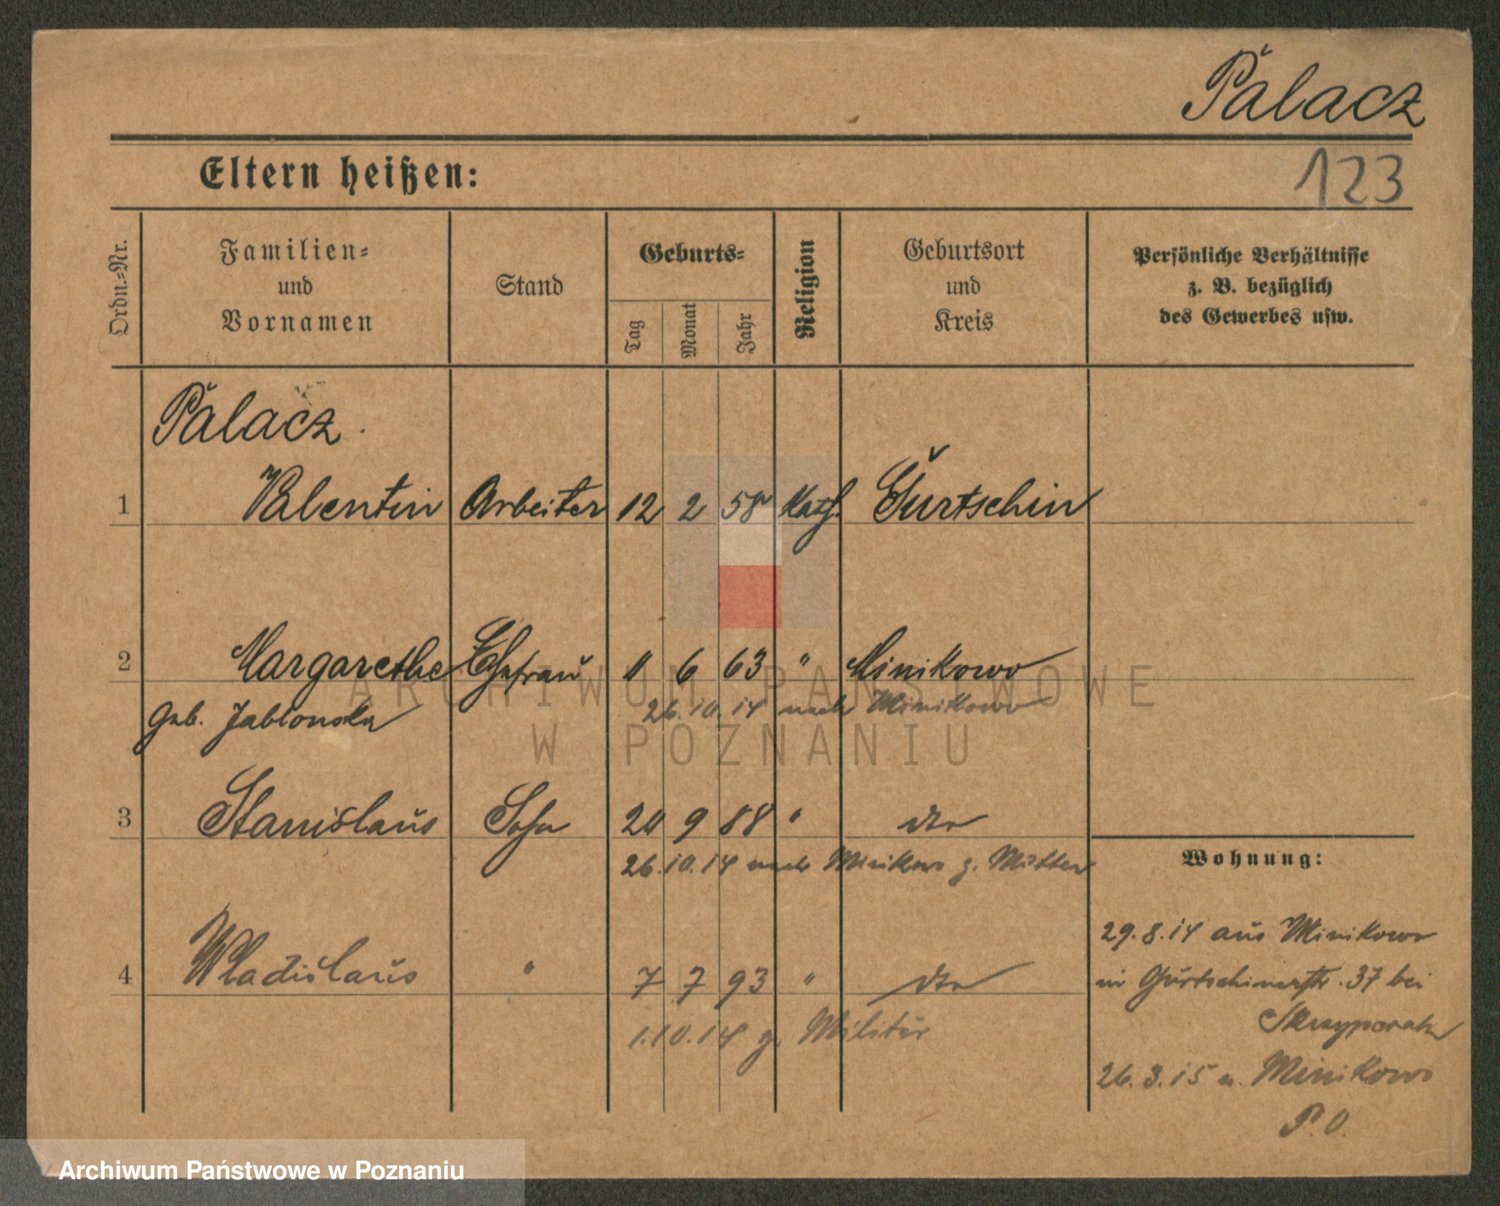 Palacz
Eltern heißen:
123
Ordn.-Nr.
Familien-
und
Vornamen
Stand
Geburts-
Tag
Monat
Jahr
Religion
Geburtsort
und
Kreis
Persönliche Verhältnisse
z. B. bezüglich
des Gewerbes usw.
Palacz.
1 Valentin Arbeiter 12 2 58 Kath. Gurtschin
2 Margarethe Ehefrau 11 6 63 " Minikowo
geb. Jablonska 26.10.14 nach Minikowo
3 Stanislaus Sohn 20 9 88 " dto
26.10.14 nach Minikowo z. Mutter
Wohnung:
4 Wladislaus " 7 7 93 " dto
1.10.14 z. Militär
29.8.14 aus Minikowo
in Gurtschinerstr. 37 bei
26.3.15 n. Minikowo
P.O.
ARCHIWUM PAŃSTWOWE
W POZNANIU
Archiwum Państwowe w Poznaniu